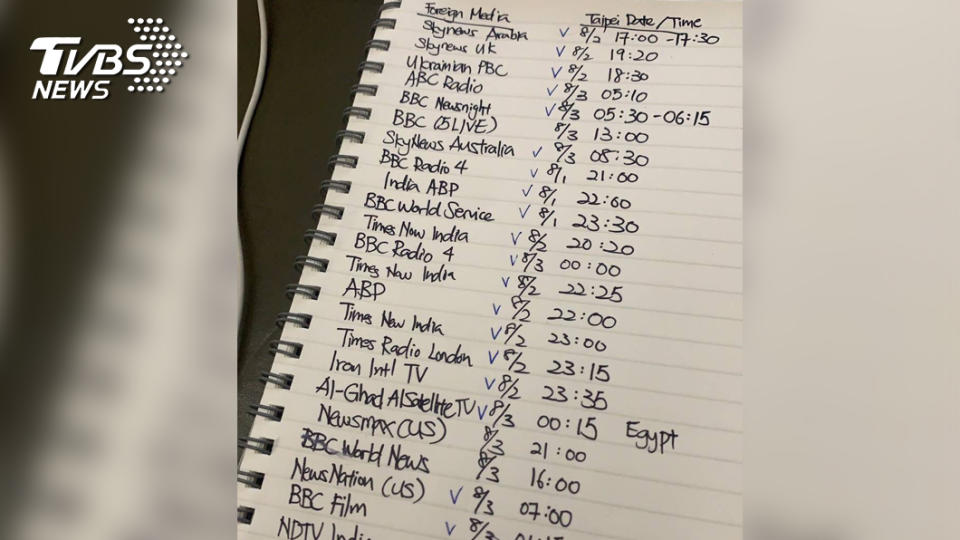 TVBS
NEWS
Foreign Media Taipei Date/Time
Skynews Arabia ✓ 8/2 17:00-17:30
Skynews UK ✓ 8/2 19:20
Ukrainian PBC ✓ 8/2 18:30
ABC Radio ✓ 8/3 05:10
BBC Newsnight ✓ 8/3 05:30-06:15
BBC (5LIVE) 8/3 13:00
SkyNews Australia ✓ 8/3 08:30
BBC Radio 4 ✓ 8/1 21:00
India ABP ✓ 8/1 22:60
BBC World Service ✓ 8/1 23:30
Times Now India ✓ 8/2 20:20
BBC Radio 4 ✓ 8/3 00:00
Times Now India ✓ 8/2 22:25
ABP ✓ 8/2 22:00
Times Now India ✓ 8/2 23:00
Times Radio London ✓ 8/2 23:15
Iran Intl TV ✓ 8/2 23:35
Al-Ghad AlSatelliteTV ✓ 8/3 00:15 Egypt
Newsmax (US) 8/3 21:00
BBC World News 8/3 16:00
NewsNation (US) ✓ 8/3 07:00
BBC Film ✓ 8/3
NDTV India